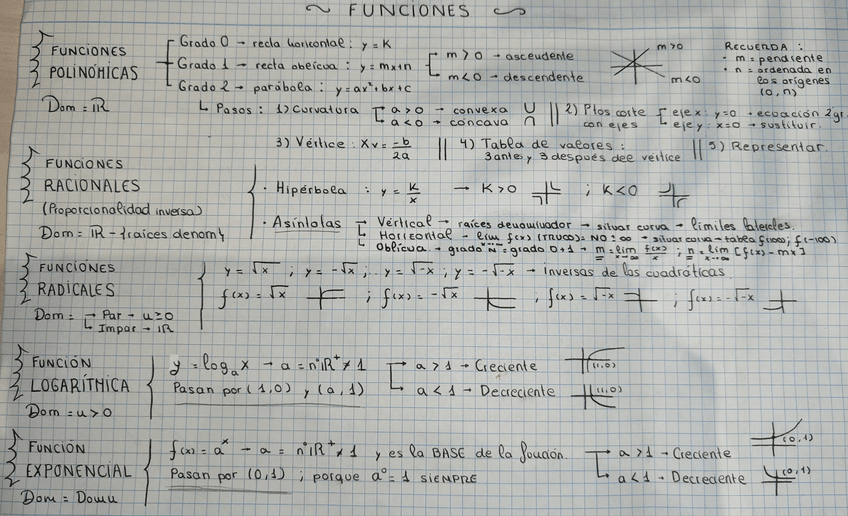 ~ FUNCIONES ~
FUNCIONES POLINÓMICAS
Dom = ℝ
Grado 0 → recta horizontal : y = K
Grado 1 → recta oblicua : y = mx+n
m > 0 → ascendente
m < 0 → descendente
Grado 2 → parábola : y = ax²+bx+c
m>0
m<0
RECUERDA :
· m = pendiente
· n = ordenada en los orígenes (0, n)
↳ Pasos : 1) Curvatura
a > 0 → convexa ∪
a < 0 → cóncava ∩
|| 2) Ptos corte con ejes
eje x : y=0 → ecuación 2ºgr.
eje y : x=0 → sustituir.
3) Vértice : Xv = -b/2a || 4) Tabla de valores : 3 antes y 3 después del vértice || 5) Representar.
FUNCIONES RACIONALES
(Proporcionalidad inversa)
Dom = ℝ - {raíces denom}
· Hipérbola : y = K/x → K>0 ; K<0
· Asíntotas → Vertical → raíces denominador → situar curva → límites laterales.
→ Horizontal → lim f(x) (TRUCO) = NO ±∞ → situar curva → tabla f(1000; f(-100)
→ Oblicua → grado "N" = grado D+1 → m = lim x→∞ f(x)/x ; n = lim x→∞ [f(x) - mx]
FUNCIONES RADICALES
Dom = → Par → u ≥ 0
↳ Impar → ℝ
y = √x ; y = -√x ; y = √-x ; y = -√-x → Inversas de las cuadráticas
f(x) = √x ; f(x) = -√x ; f(x) = √-x ; f(x) = -√-x
FUNCIÓN LOGARÍTMICA
Dom = u > 0
y = logₐx → a = nº ℝ⁺ ≠ 1
Pasan por (1,0) y (a,1)
a > 1 → Creciente (1,0)
a < 1 → Decreciente (1,0)
FUNCIÓN EXPONENCIAL
Dom = Dom u
f(x) = aˣ → a = nº ℝ⁺ ≠ 1 y es la BASE de la función.
Pasan por (0,1) ; porque a⁰ = 1 SIEMPRE
a > 1 → Creciente (0,1)
a < 1 → Decreciente (0,1)